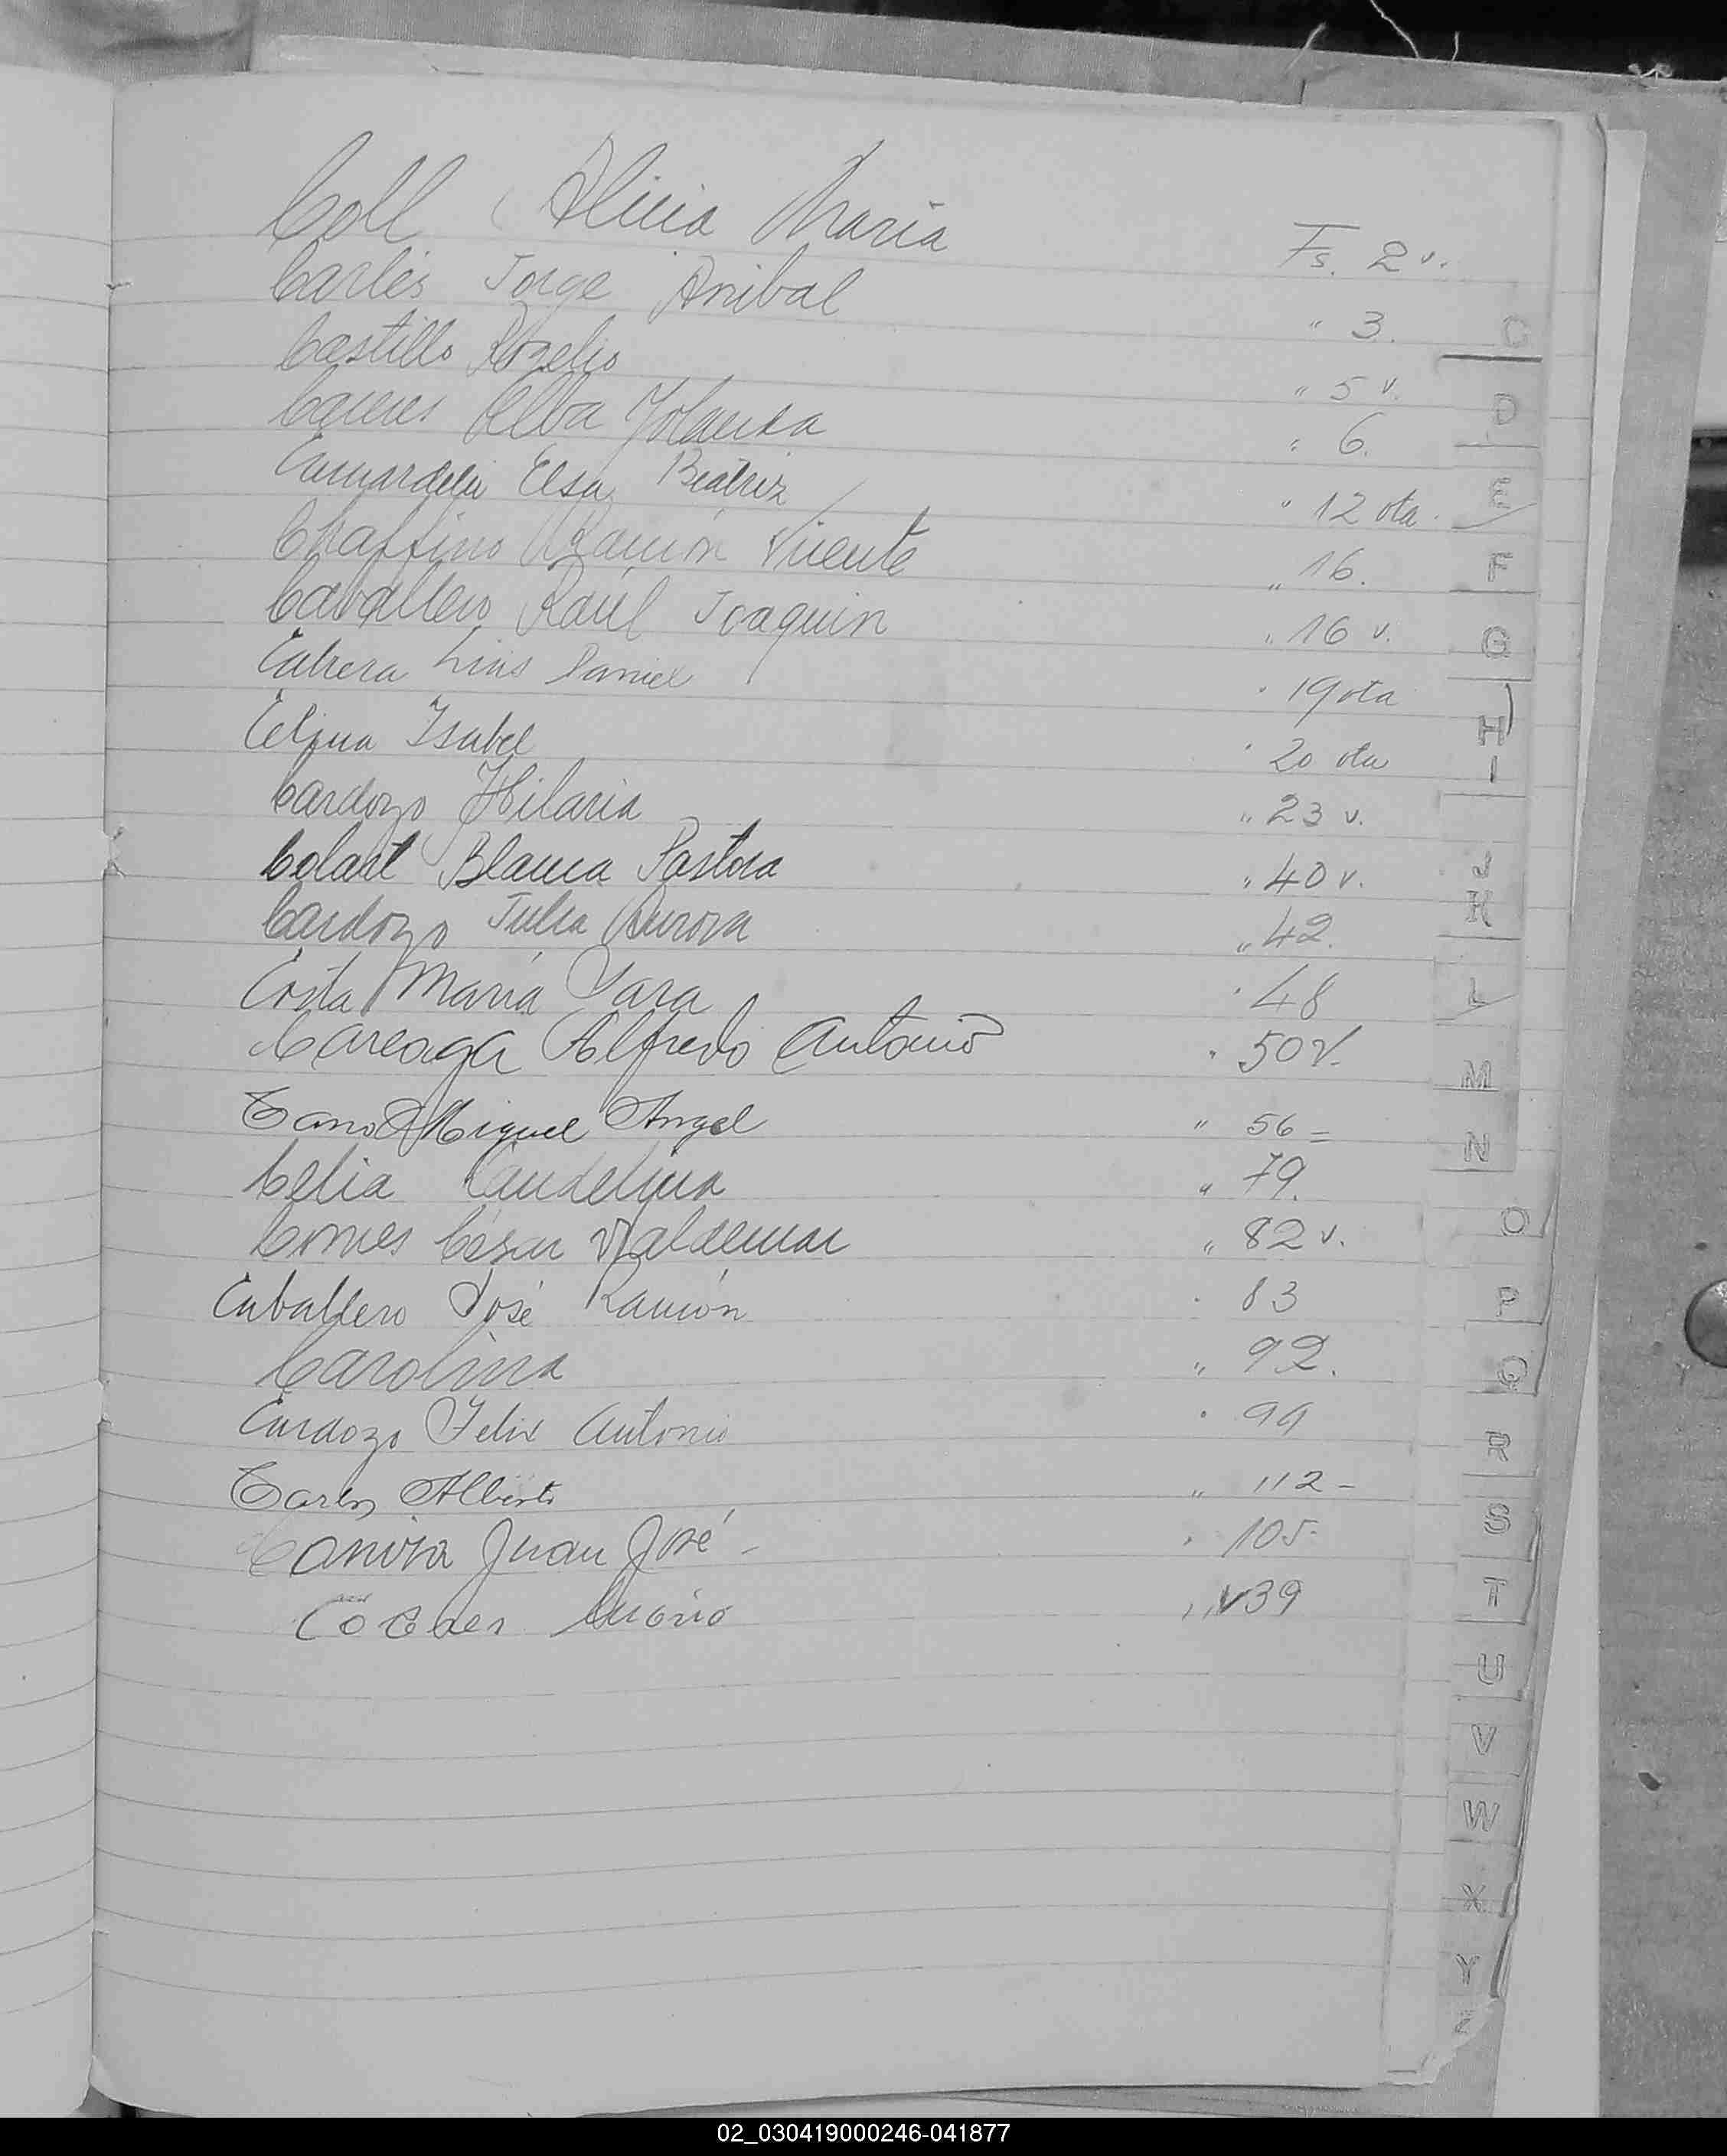 Coll Alicia Maria Fs. 2 v.
Carlés Jorge Anibal " 3.
Castillo Rogelio " 5 v.
Alba Yolanda " 6.
Elsa Beatriz " 12 vta.
Chaffino Ramón Vicente " 16.
Cavallero Raúl Joaquin " 16 v.
Cabrera Luis Daniel " 19 vta
Celjua Isabel " 20 vta
Cardozo Hilaria " 23 v.
Colart Blanca Pastora " 40 v.
Cardozo Julia Aurora " 42.
Costa María Sara " 48
Careaga Alfredo Antonio " 50 V.
Cano Miguel Angel " 56 =
Celia Candelaria " 79.
César Waldemar " 82 v.
Caballero José Ramón " 83
Carolina " 92.
Cardozo Felix Antonio " 99
Carlos Alberto " 112 -
Juan José - " 105-
" V39
C
D
E
F
G
H
I
J
K
L
M
N
O
P
Q
R
S
T
U
V
W
X
Y
Z
02_030419000246-041877